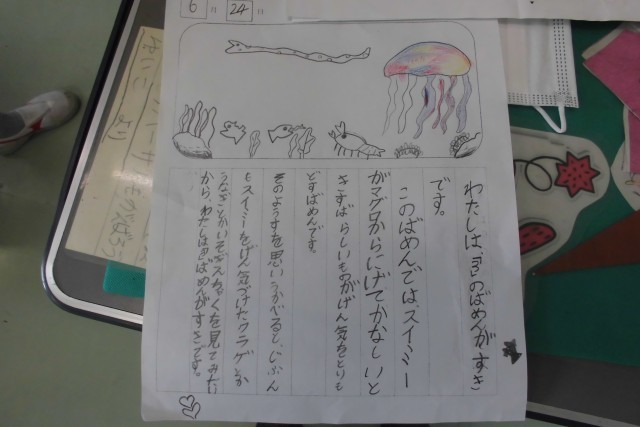 6月24日
わたしは、「③」のばめんがすき
です。
このばめんでは、スイミー
がマグロからにげてかなしいと
きすばらしいものがげん気をとりも
どすばめんです。
そのようすを思いうかべると、じぶん
もスイミーをげん気づけたクラゲとか
うなぎとかいそぎんちゃくを見てみたい
から、わたしは③ばめんがすきです。